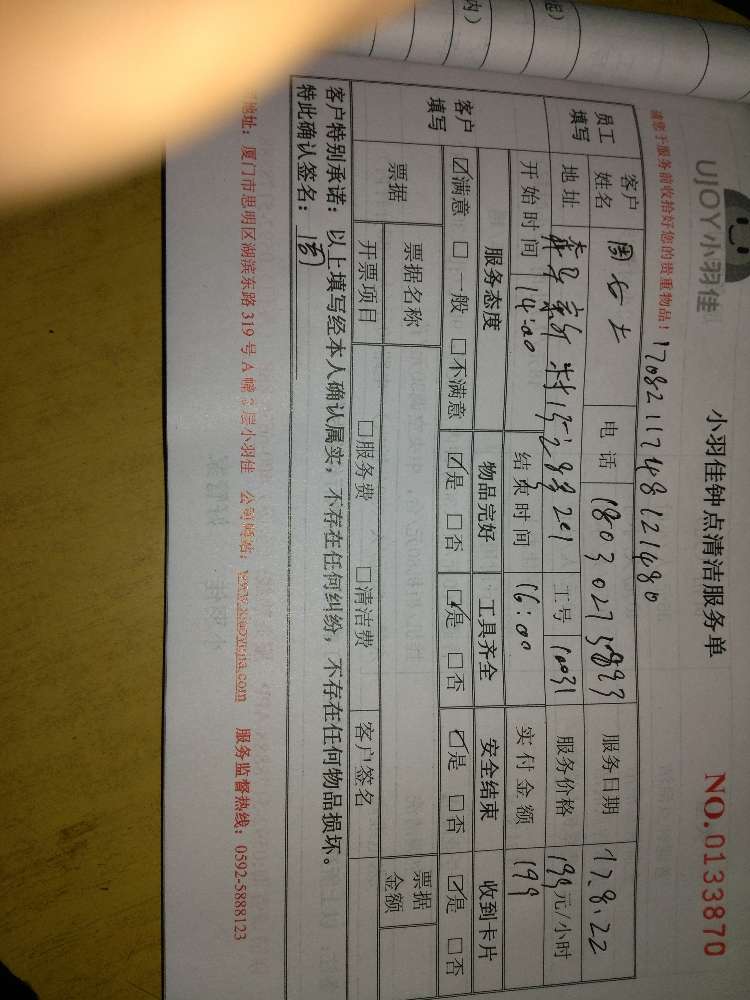 UJOY小羽佳
小羽佳钟点清洁服务单
NO.0133870
请您于服务前收拾好您的贵重物品！
1708211748121480
员工填写
客户姓名 周女士 电话 服务日期 17.8.22
地址 工号 10031 服务价格 199元/小时
开始时间 14:00 结束时间 16:00 实付金额 199
客户填写
服务态度 物品完好 工具齐全 安全结束 收到卡片
☑满意 □一般 □不满意 ☑是 □否 ☑是 □否 ☑是 □否 ☑是 □否
票据 票据名称 票据金额
开票项目 □服务费 □清洁费 客户签名
客户特别承诺：以上填写经本人确认属实，不存在任何纠纷，不存在任何物品损坏。
特此确认签名：周
地址：厦门市思明区湖滨东路319号A幢 层小羽佳 公司网站： 服务监督热线：0592-5888123